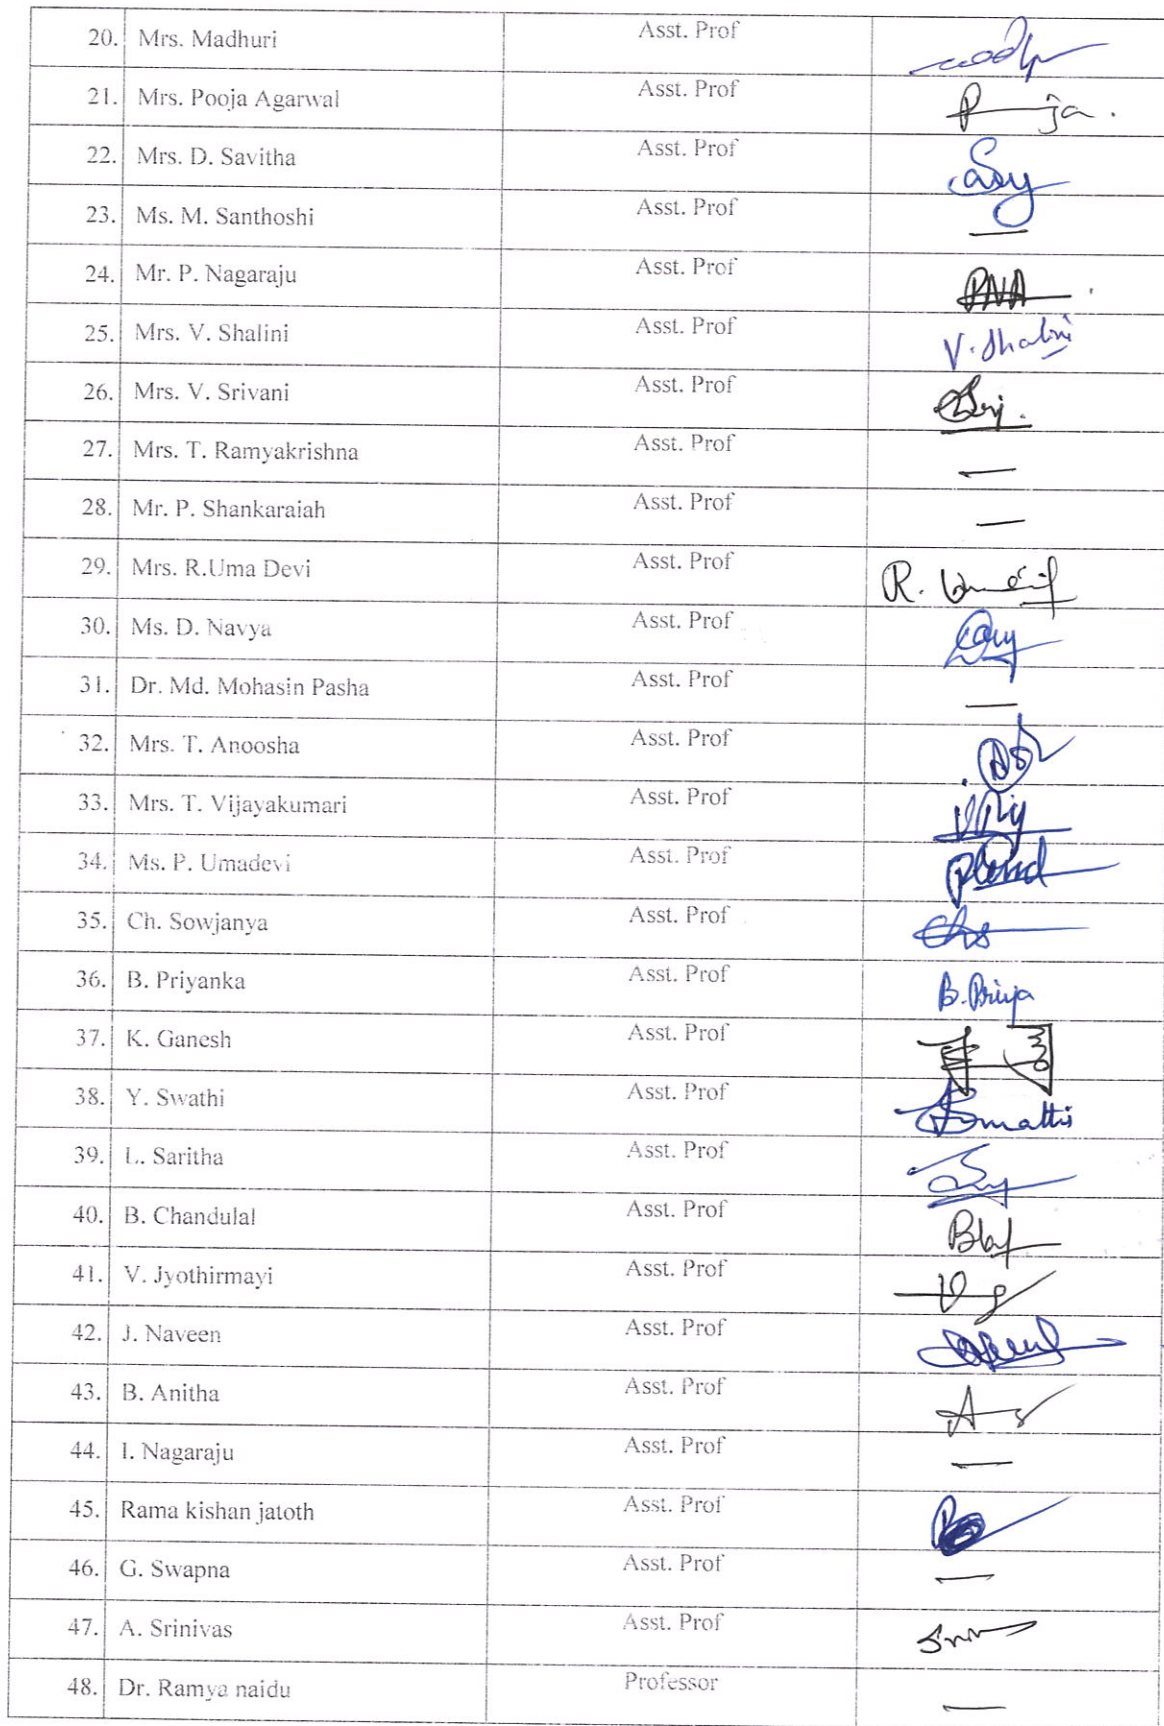 20. Mrs. Madhuri Asst. Prof
21. Mrs. Pooja Agarwal Asst. Prof P ja.
22. Mrs. D. Savitha Asst. Prof
23. Ms. M. Santhoshi Asst. Prof —
24. Mr. P. Nagaraju Asst. Prof
25. Mrs. V. Shalini Asst. Prof V. Shalini
26. Mrs. V. Srivani Asst. Prof
27. Mrs. T. Ramyakrishna Asst. Prof —
28. Mr. P. Shankaraiah Asst. Prof —
29. Mrs. R.Uma Devi Asst. Prof R.
30. Ms. D. Navya Asst. Prof
31. Dr. Md. Mohasin Pasha Asst. Prof —
32. Mrs. T. Anoosha Asst. Prof
33. Mrs. T. Vijayakumari Asst. Prof
34. Ms. P. Umadevi Asst. Prof
35. Ch. Sowjanya Asst. Prof
36. B. Priyanka Asst. Prof B. Priya
37. K. Ganesh Asst. Prof
38. Y. Swathi Asst. Prof
39. L. Saritha Asst. Prof
40. B. Chandulal Asst. Prof
41. V. Jyothirmayi Asst. Prof
42. J. Naveen Asst. Prof
43. B. Anitha Asst. Prof
44. I. Nagaraju Asst. Prof —
45. Rama kishan jatoth Asst. Prof
46. G. Swapna Asst. Prof —
47. A. Srinivas Asst. Prof
48. Dr. Ramya naidu Professor —